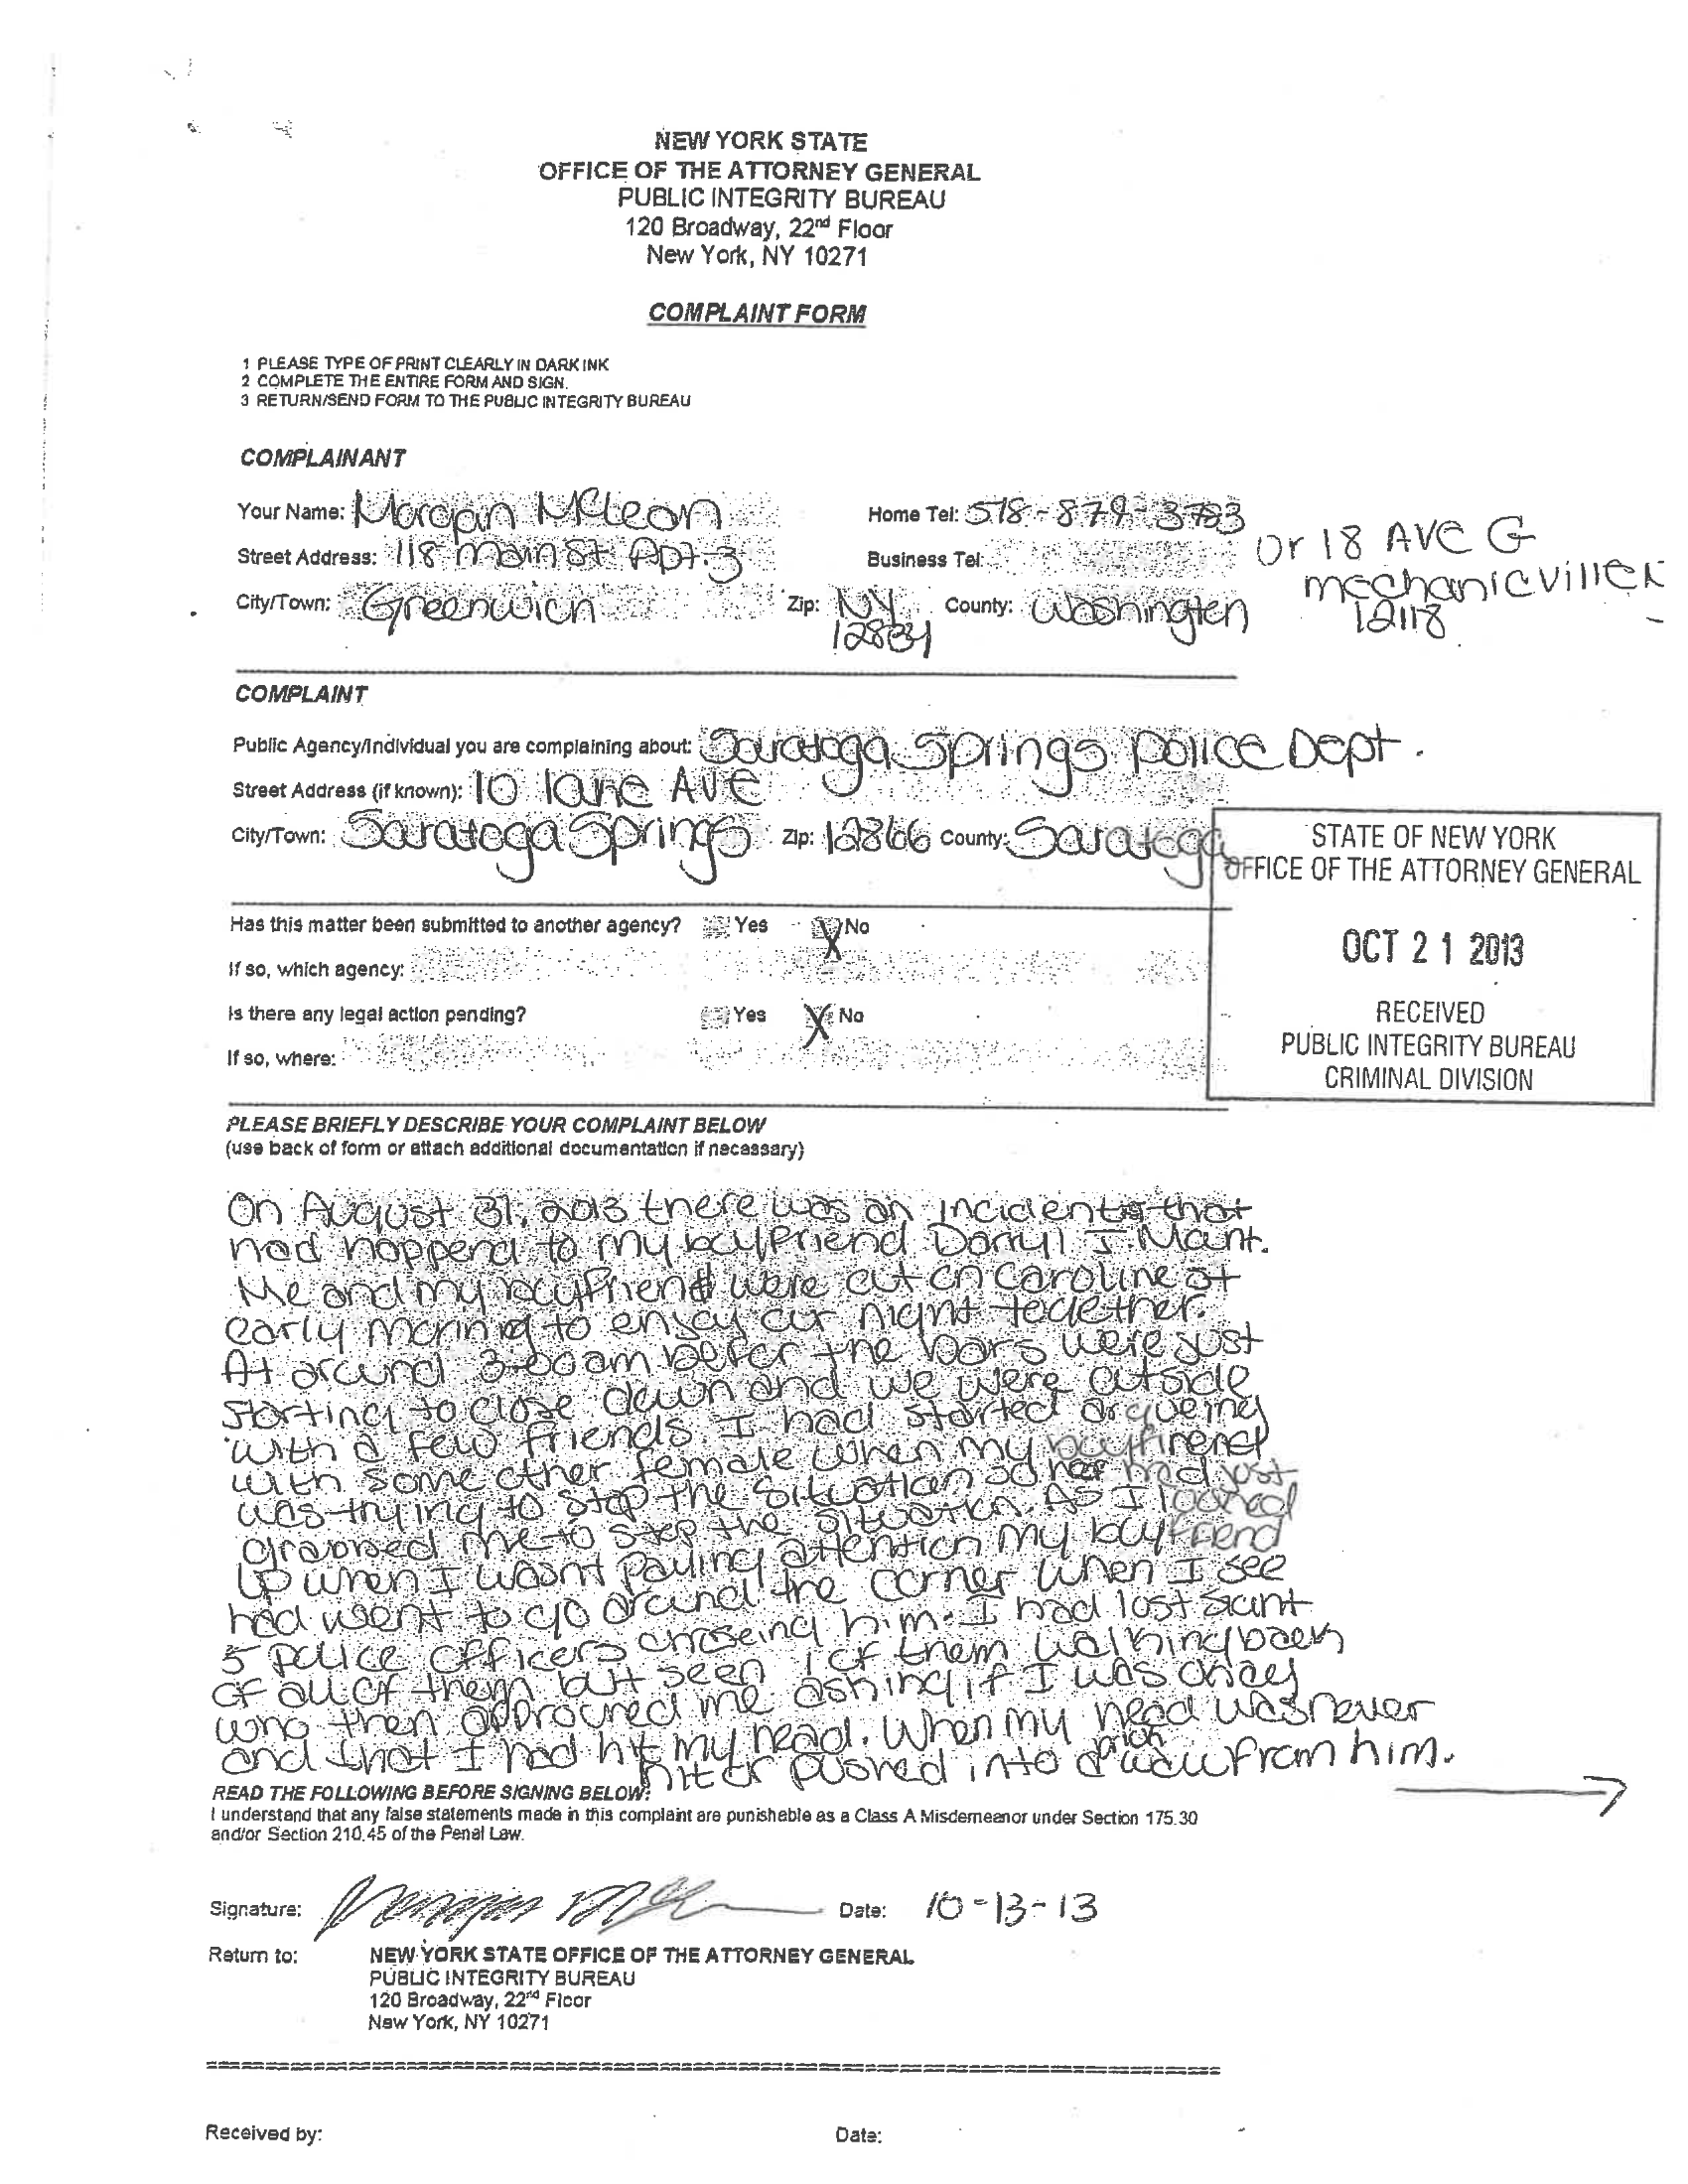 NEW YORK STATE
OFFICE OF THE ATTORNEY GENERAL
PUBLIC INTEGRITY BUREAU
120 Broadway, 22nd Floor
New York, NY 10271
COMPLAINT FORM
1 PLEASE TYPE OF PRINT CLEARLY IN DARK INK
2 COMPLETE THE ENTIRE FORM AND SIGN.
3 RETURN/SEND FORM TO THE PUBLIC INTEGRITY BUREAU
COMPLAINANT
Your Name: Morgan McLean Home Tel: 518-879-3783
Street Address: 118 Main St Apt. 3 Business Tel: Or 18 AVE G
City/Town: Greenwich Zip: NY 12834 County: Washington mechanicville
12118
COMPLAINT
Public Agency/Individual you are complaining about: Saratoga Springs Police Dept.
Street Address (if known): 10 lane AVE
City/Town: Saratoga Springs Zip: 12866 County: Saratoga
STATE OF NEW YORK
OFFICE OF THE ATTORNEY GENERAL
OCT 21 2013
RECEIVED
PUBLIC INTEGRITY BUREAU
CRIMINAL DIVISION
Has this matter been submitted to another agency? Yes X No
If so, which agency:
Is there any legal action pending? Yes X No
If so, where:
PLEASE BRIEFLY DESCRIBE YOUR COMPLAINT BELOW
(use back of form or attach additional documentation if necessary)
On August 31, 2013 there was an incident that
had happend to my boyfriend Darryl J. Mount.
Me and my boyfriend were out on Caroline st
early morning to enjoy our night together.
At around 3:00am the bars were just
starting to close down and we were outside
with a few friends I had started argueing
with some other female when my boyfirend
was trying to stop the situation so he had just
grabbed me to stop the situation. As I looked
up when I wasnt paying attention my boyfriend
had went to go around the corner when I see
5 police officers chaseing him. I had lost sight
of all of them but seen 1 of them walking back
who then approched me asking if I was okay
and that I had hit my head. When my head was never
hit or pushed into a brick wall from him.
READ THE FOLLOWING BEFORE SIGNING BELOW:
I understand that any false statements made in this complaint are punishable as a Class A Misdemeanor under Section 175.30
and/or Section 210.45 of the Penal Law.
Signature: Morgan Date: 10-13-13
Return to: NEW YORK STATE OFFICE OF THE ATTORNEY GENERAL
PUBLIC INTEGRITY BUREAU
120 Broadway, 22nd Floor
New York, NY 10271
Received by: Date: